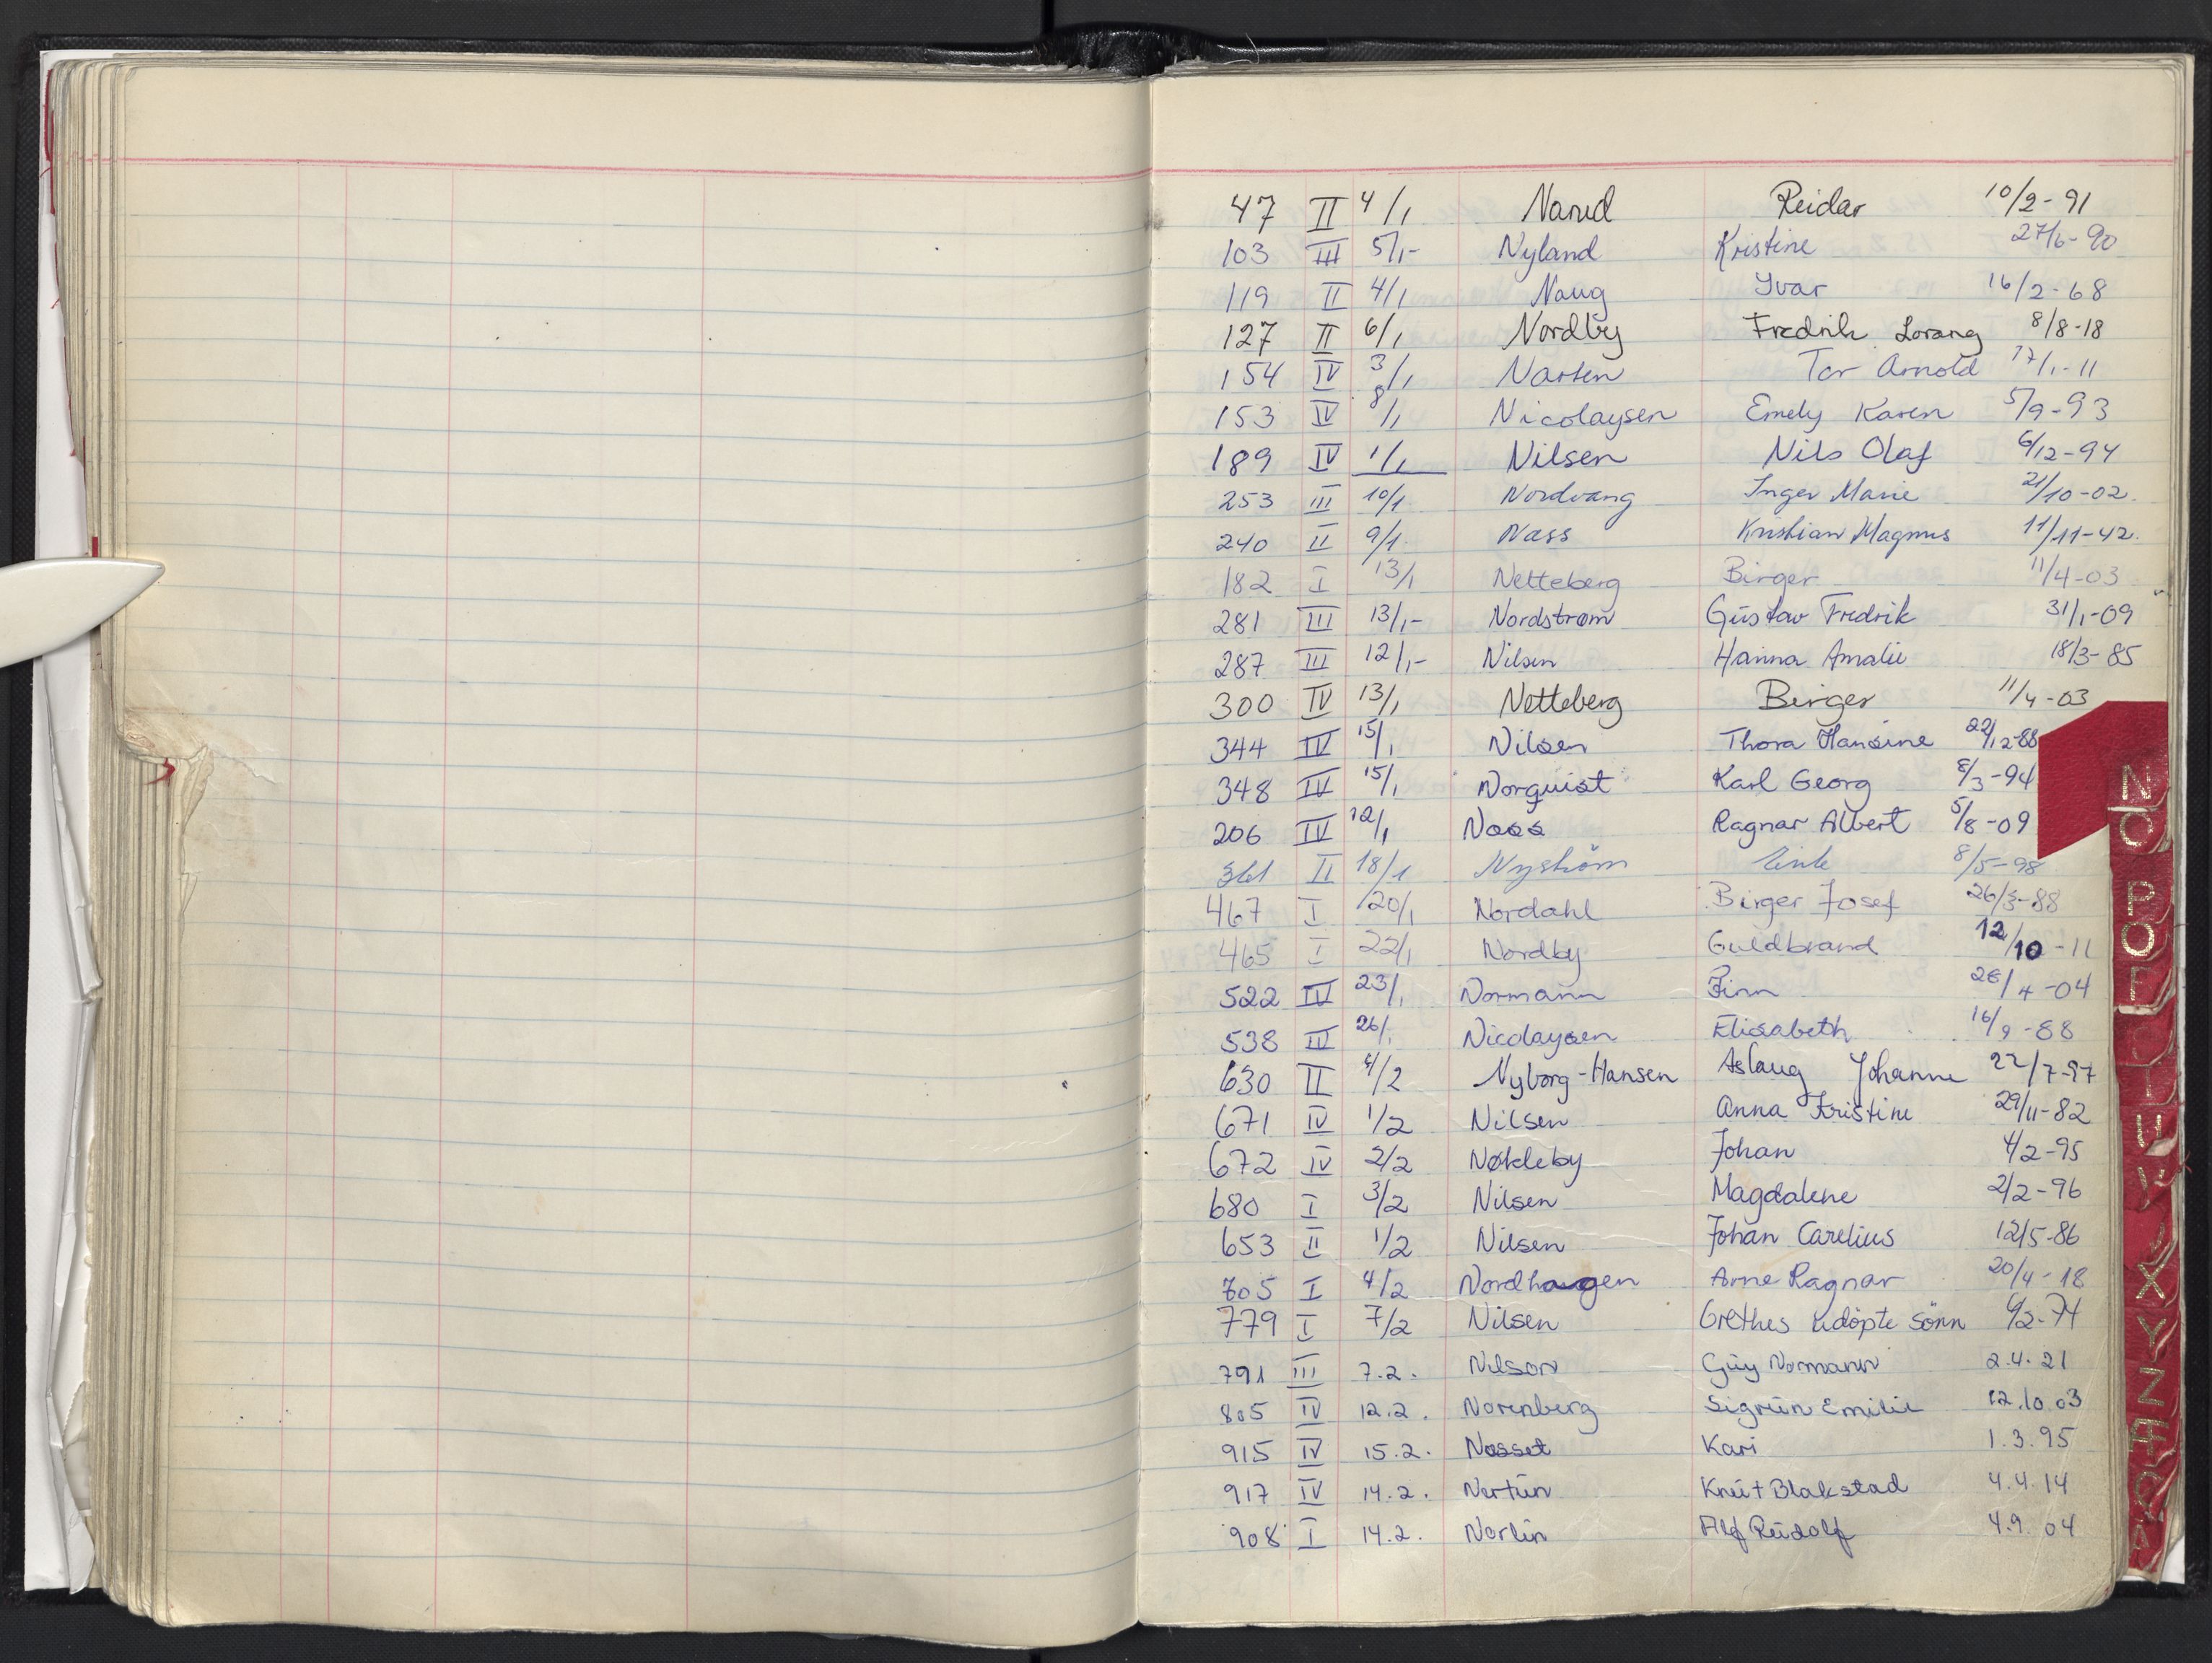 47 II 4/1 Narud Reidar 10/2-91
103 III 5/1- Nyland Kristine 27/6-90
119 II 4/1 Naug Yvar 16/2-68
127 II 6/1 Nordby Fredrik Lorang 8/8-18
154 IV 3/1 Narten Tor Arnold 17/1-11
153 IV 8/1 Nicolaysen Emely Karen 5/9-93
189 IV 1/1 Nilsen Nils Olaf 6/12-94
253 III 10/1 Nordvang Inger Marie 21/10-02.
240 II 9/1 Nass Kristian Magnus 11/11-42.
182 I 13/1 Netteberg Birger 11/4-03
281 III 13/1- Nordstrøm Gustav Fredrik 31/1-09
287 III 12/1- Nilsen Hanna Amalie 18/3-85
300 IV 13/1 Netteberg Birger 11/4-03
344 IV 15/1 Nilsen Thora Hansine 22/12-88
348 IV 15/1 Norquist Karl Georg 8/3-94
206 IV 12/1 Ragnar Albert 5/8-09
361 II 18/1 Nyström 8/5-98
467 I 20/1 Nordahl Birger Josef 26/3-88
465 I 22/1 Nordby Guldbrand 12/10-11
522 IV 23/1 Normann Finn 28/4-04
538 IV 26/1 Nicolaysen Elisabeth 16/9-88
630 II 4/2 Nyborg-Hansen Aslaug Johanne 22/7-97
671 IV 1/2 Nilsen Anna Kristine 29/11-82
672 IV 2/2 Nøkleby Johan 4/2-95
680 I 3/2 Nilsen Magdalene 2/2-96
653 II 1/2 Nilsen Johan Carelius 12/5-86
705 I 4/2 Nordhagen Arne Ragnar 20/4-18
779 I 7/2 Nilsen Grethes udöpte sönn 6/2-74
791 III 7.2. Nilson Guy Normann 2.4.21
805 IV 12.2. Norenberg Sigrun Emilie 12.10.03
915 IV 15.2. Nesset Kari 1.3.95
917 IV 14.2. Nertun Knut Blakstad 4.4.14
908 I 14.2. Norlin Alf Rudolf 4.9.04
N
O
P
X
Y
Z